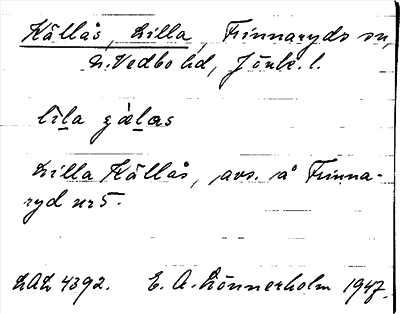 Källås, Lilla, Finnaryds sn,
N. Vedbo hd, Jönk. l.
lìla gálas
Lilla Källås, avs. å Finna-
ryd nr 5.
LAL 4392. E. A. Lönnerholm 1947.